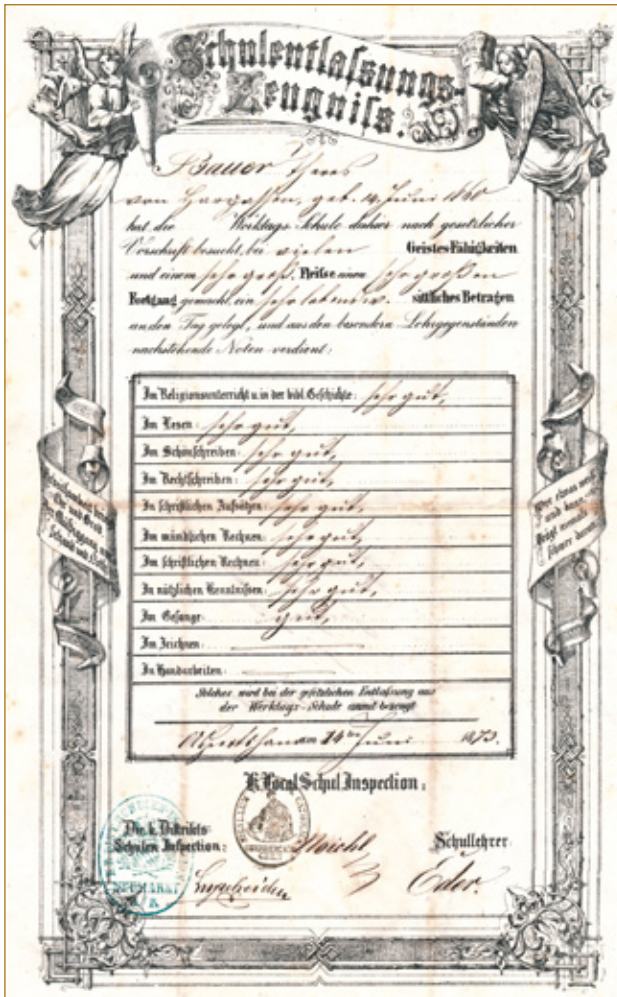 Schulentlaſsungs-
Zeugniſs.
Bauer Theres
von geb. 14. Juni 1860
hat die Werktags-Schule dahier nach gesetzlicher
Vorschrift besucht, bei vielen Geistes-Fähigkeiten
und einem sehr groß. Fleiße einen sehr großen
Fortgang gemacht, ein sehr lobensw. sittliches Betragen
an den Tag gelegt, und aus den besondern Lehrgegenständen
nachstehende Noten verdient:
Im Religionsunterricht u. in der bibl. Geschichte: sehr gut,
Im Lesen: sehr gut,
Im Schönschreiben: sehr gut,
Im Rechtschreiben: sehr gut,
In schriftlichen Aufsätzen: sehr gut,
Im mündlichen Rechnen: sehr gut,
Im schriftlichen Rechnen: sehr gut,
In nützlichen Kenntnissen: sehr gut,
Im Gesange: gut,
Im Zeichnen:
In Handarbeiten:
Solches wird bei der gesetzlichen Entlassung aus
der Werktags-Schule anmit bezeugt
am 14ten Juni 1873.
K. Local Schul Inspection:
Die k. Distrikts
Schulen Inspection:
Moichl
Schullehrer
Eder.
NEUMARKT
Wer etwas weiß
und kann,
Trägt niemals
schwer daran.